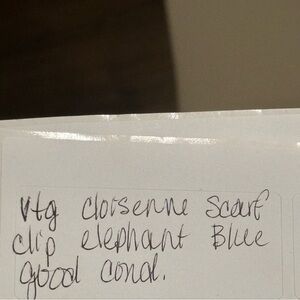 vtg cloisenne scarf
clip elephant Blue
good cond.